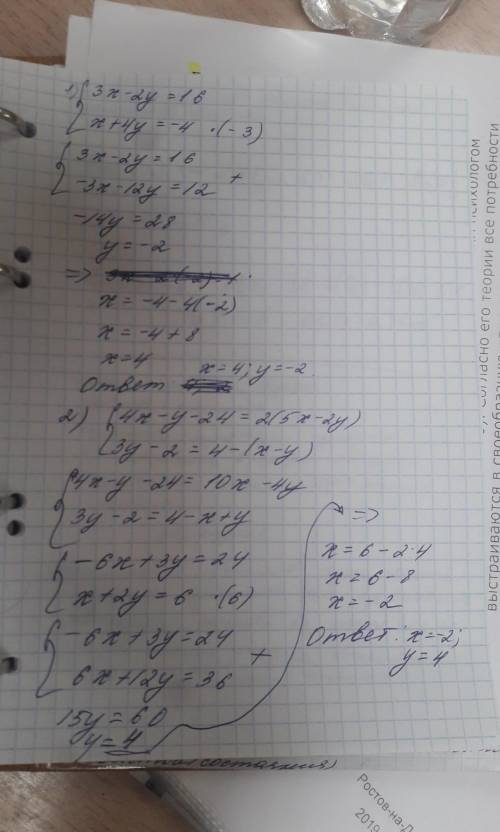 1) { 3x-2y=16
x+4y=-4 ·(-3)
{ 3x-2y=16
-3x-12y=12 +
-14y=28
y=-2
=>
x=-4-4(-2)
x=-4+8
x=4
Ответ x=4; y=-2
2) { 4x-y-24=2(5x-2y)
3y-2=4-(x-y)
{ 4x-y-24=10x-4y
3y-2=4-x+y
{ -6x+3y=24
x+2y=6 ·(6)
{ -6x+3y=24
6x+12y=36 +
15y=60
y=4
=>
x=6-2·4
x=6-8
x=-2
Ответ: x=-2;
y=4
психологом
Согласно его теории все потребности
выстраиваются в
Ростов-на-Д
2019